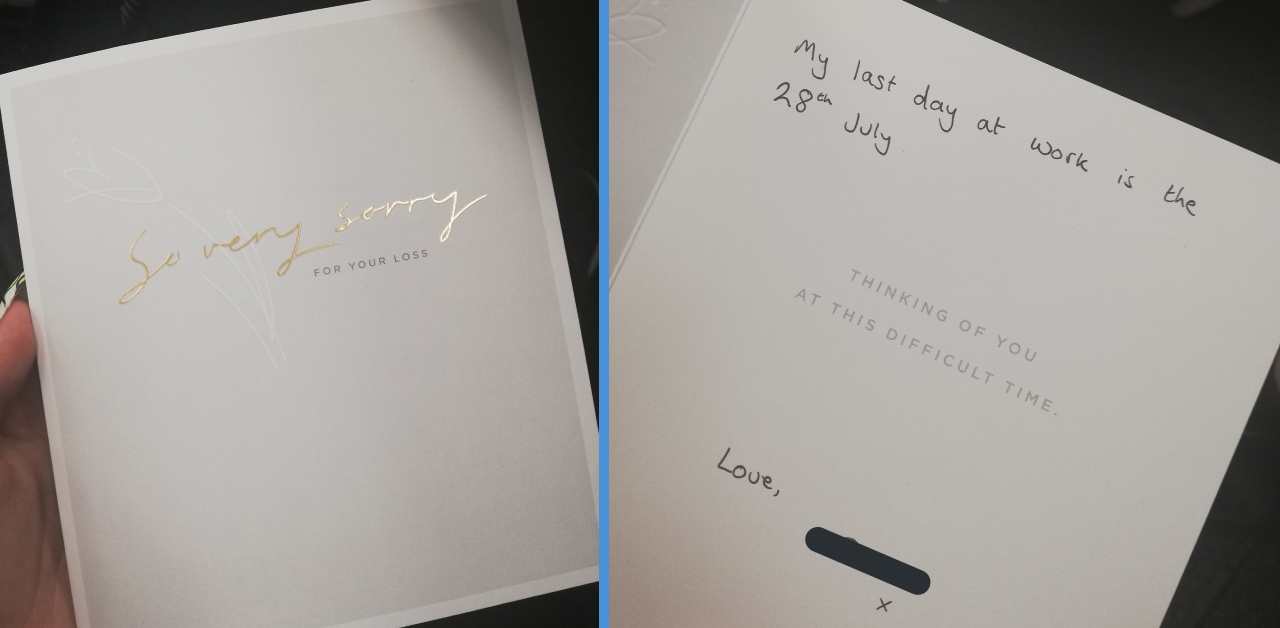 So very sorry
FOR YOUR LOSS
My last day at work is the
28th July
THINKING OF YOU
AT THIS DIFFICULT TIME.
Love,
x